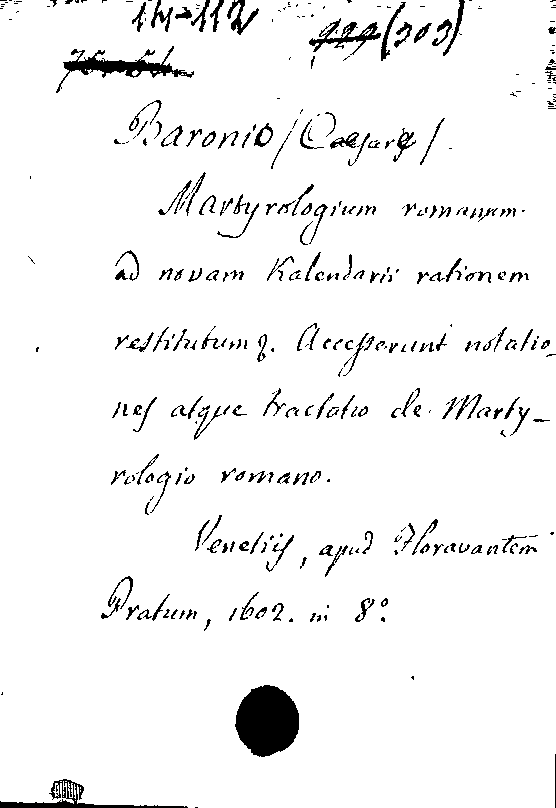 14-112 (303)
Baronio / Caesare /.
Martyrologium romanum.
ad novam Kalendarii rationem
restitutumq. Accesserunt notatio_
nes atque tractatio de Marty_
rologio romano.
Venetiis, apud Floravantem
Pratum, 1602. in 8°.